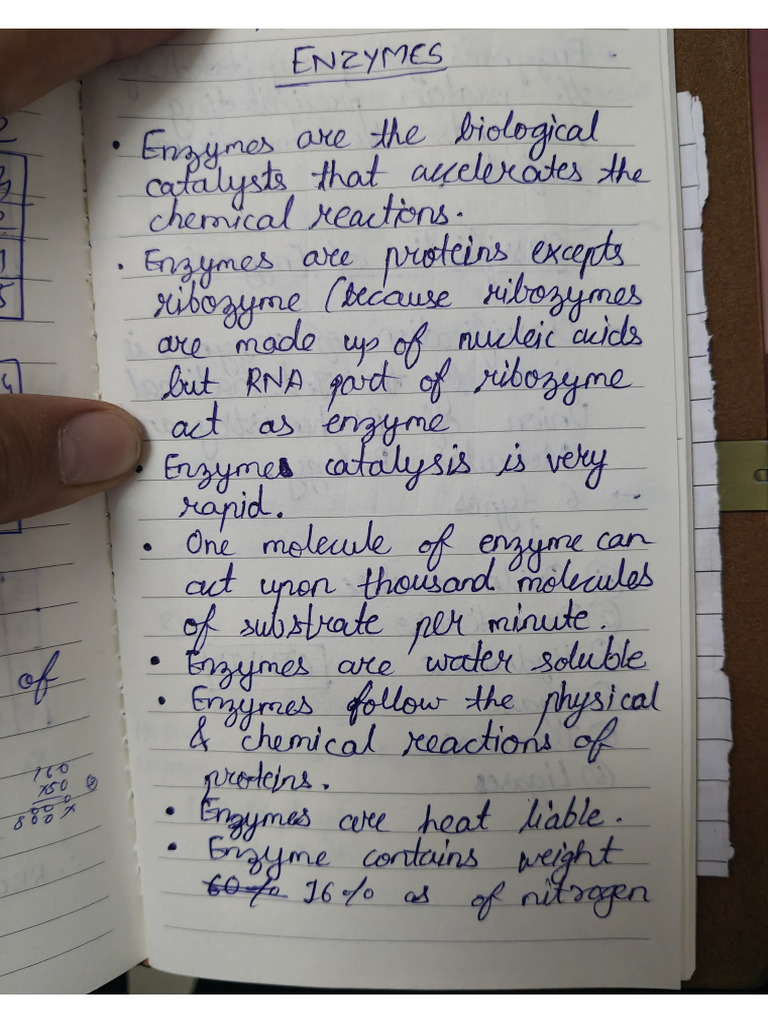 ENZYMES
• Enzymes are the biological
catalysts that accelerates the
chemical reactions.
• Enzymes are proteins excepts
ribozyme (because ribozymes
are made up of nucleic acids
but RNA part of ribozyme
act as enzyme
• Enzymes catalysis is very
rapid.
• One molecule of enzyme can
act upon thousand molecules
of substrate per minute.
• Enzymes are water soluble
• Enzymes follow the physical
& chemical reactions of
proteins.
• Enzymes are heat liable.
• Enzyme contains weight
60% 16% as of nitrogen
of
160
x50
000
800x